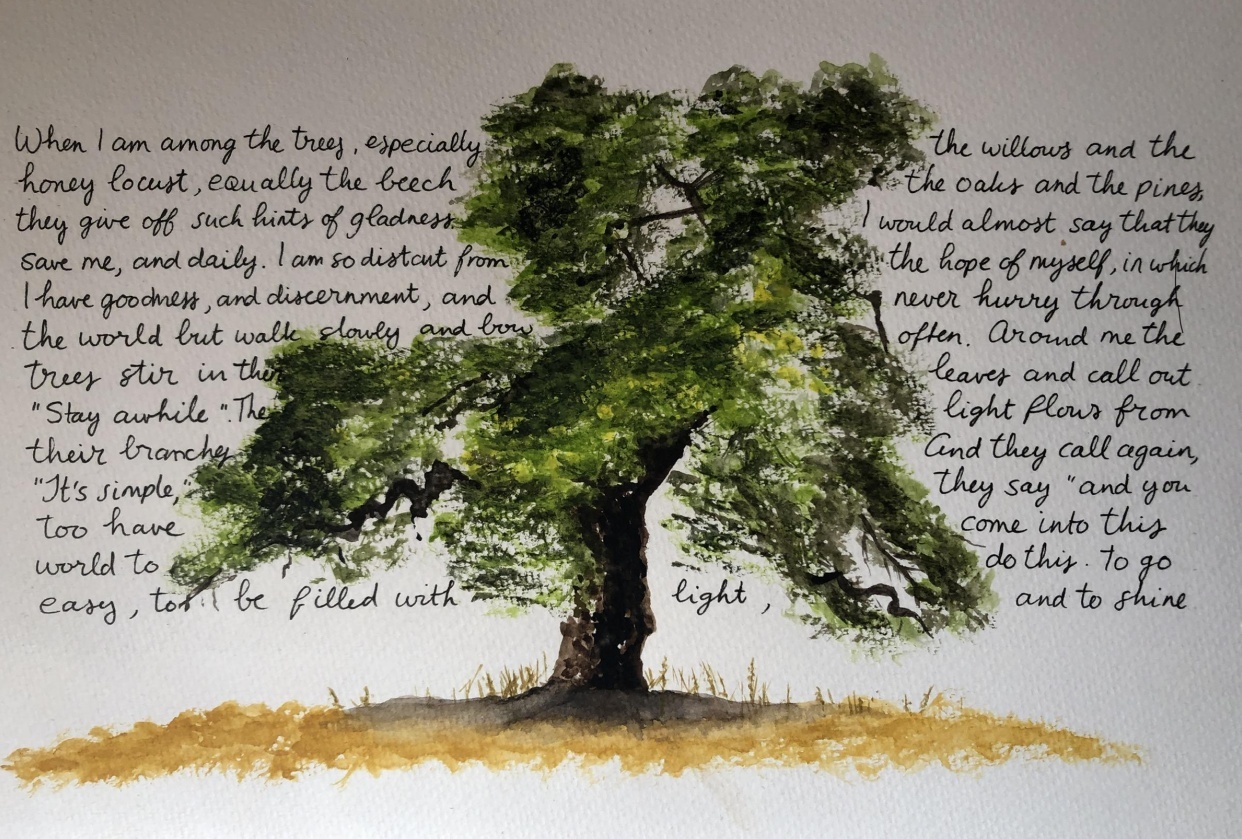 When I am among the trees, especially the willows and the
honey locust, equally the beech the oaks and the pines,
they give off such hints of gladness. I would almost say that they
save me, and daily. I am so distant from the hope of myself, in which
I have goodness, and discernment, and never hurry through
the world but walk slowly and bow often. Around me the
trees stir in their leaves and call out
"Stay awhile". The light flows from
their branches And they call again,
"It's simple," they say "and you
too have come into this
world to do this. To go
easy, to be filled with light, and to shine